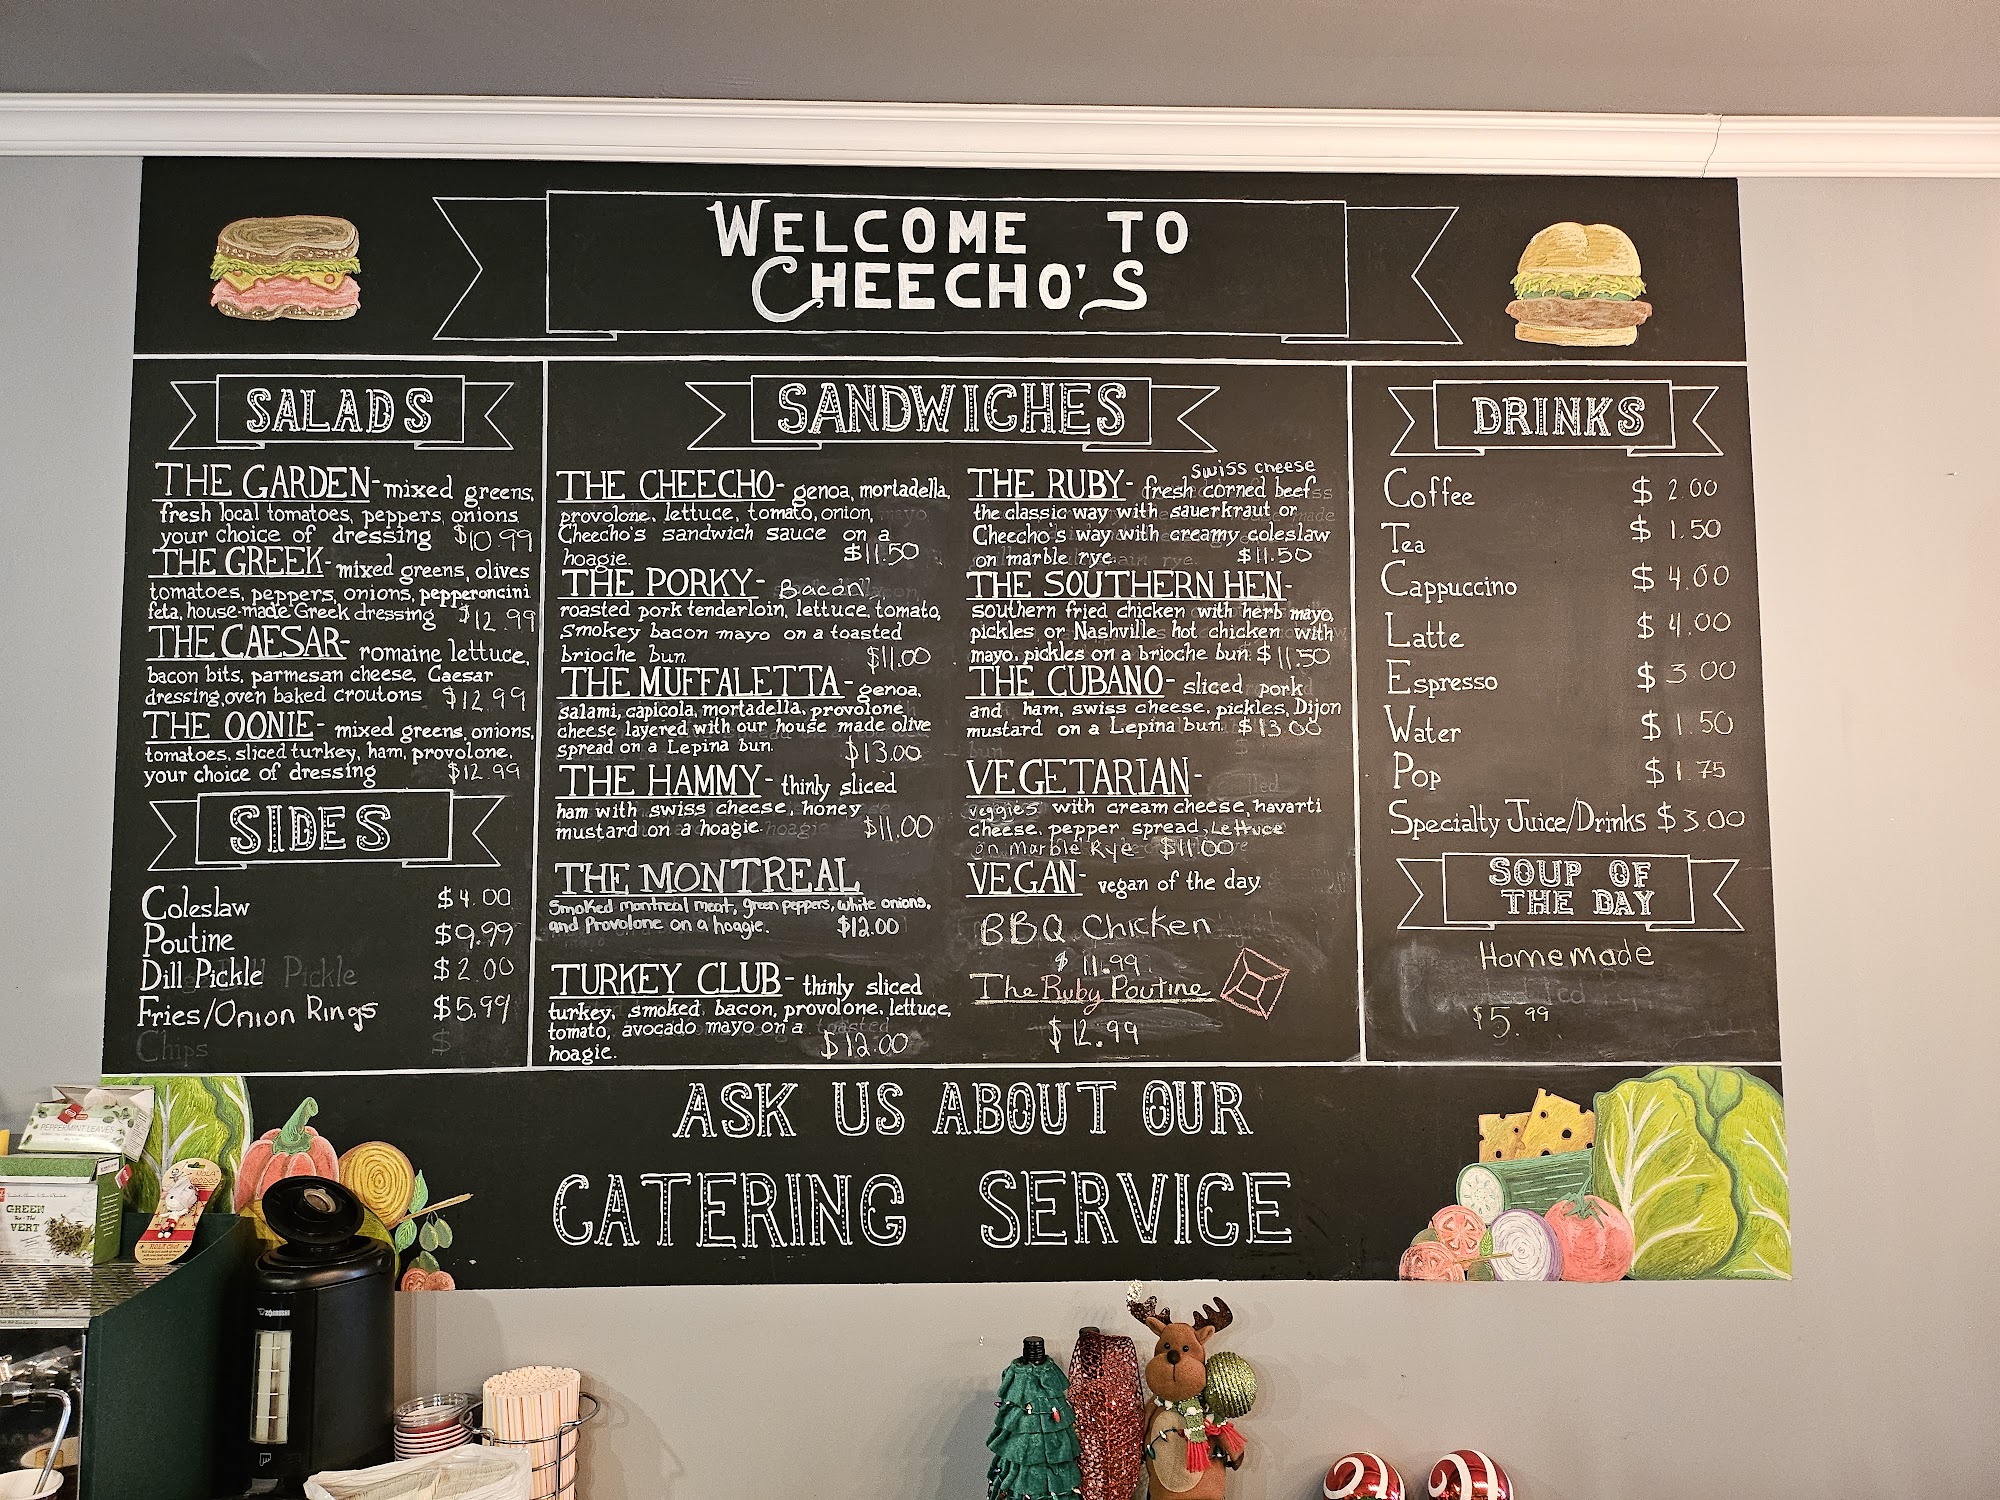 WELCOME TO
CHEECHO'S
SALADS
THE GARDEN- mixed greens,
fresh local tomatoes, peppers, onions
your choice of dressing $10.99
THE GREEK- mixed greens, olives
tomatoes, peppers, onions, pepperoncini
feta, house-made Greek dressing $12.99
THE CAESAR- romaine lettuce,
bacon bits, parmesan cheese, Caesar
dressing, oven baked croutons $12.99
THE OONIE- mixed greens, onions,
tomatoes, sliced turkey, ham, provolone,
your choice of dressing $12.99
SIDES
Coleslaw $4.00
Poutine $9.99
Dill Pickle Pickle $2.00
Fries/Onion Rings $5.99
Chips $
SANDWICHES
THE CHEECHO- genoa, mortadella,
provolone, lettuce, tomato, onion,
Cheecho's sandwich sauce on a
hoagie. $11.50
THE PORKY- Bacon,
roasted pork tenderloin, lettuce, tomato,
smokey bacon mayo on a toasted
brioche bun. $11.00
THE MUFFALETTA- genoa,
salami, capicola, mortadella, provolone
cheese layered with our house made olive
spread on a Lepina bun. $13.00
THE HAMMY- thinly sliced
ham with swiss cheese, honey
mustard on a hoagie. hoagie $11.00
THE MONTREAL
Smoked montreal meat, green peppers, white onions,
and Provolone on a hoagie. $12.00
TURKEY CLUB- thinly sliced
turkey, smoked bacon, provolone, lettuce,
tomato, avocado mayo on a toasted
hoagie. $12.00
swiss cheese
THE RUBY- fresh corned beef
the classic way with sauerkraut or
Cheecho's way with creamy coleslaw
on marble rye. $11.50
THE SOUTHERN HEN-
southern fried chicken with herb mayo,
pickles or Nashville hot chicken with
mayo, pickles on a brioche bun. $11.50
THE CUBANO- sliced pork
and ham, swiss cheese, pickles, Dijon
mustard on a Lepina bun. $13.00
VEGETARIAN-
veggies with cream cheese, havarti
cheese, pepper spread, Lettuce
on Marble Rye $11.00
VEGAN- vegan of the day.
BBQ Chicken
$11.99
The Ruby Poutine
$12.99
DRINKS
Coffee $2.00
Tea $1.50
Cappuccino $4.00
Latte $4.00
Espresso $3.00
Water $1.50
Pop $1.75
Specialty Juice/Drinks $3.00
SOUP OF
THE DAY
Homemade
$5.99
ASK US ABOUT OUR
CATERING SERVICE
PEPPERMINT LEAVES
GREEN
VERT
ZOJIRUSHI